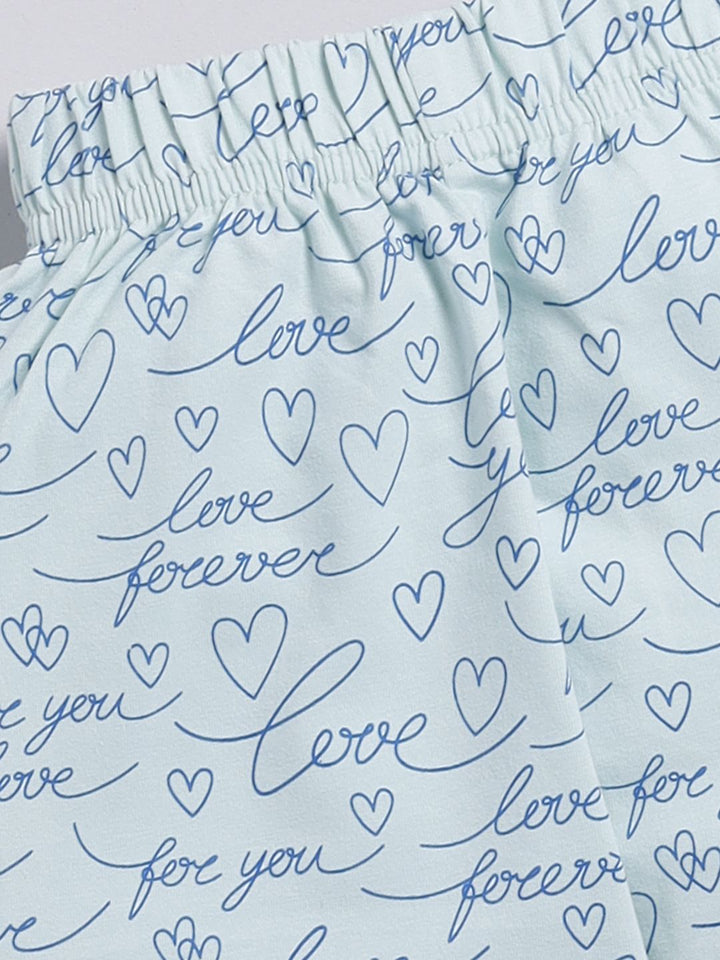 you
for you
love
love
love
for you
for you
forever
love
love
love
love
forever
forever
for you
love
love
love for
for you
forever